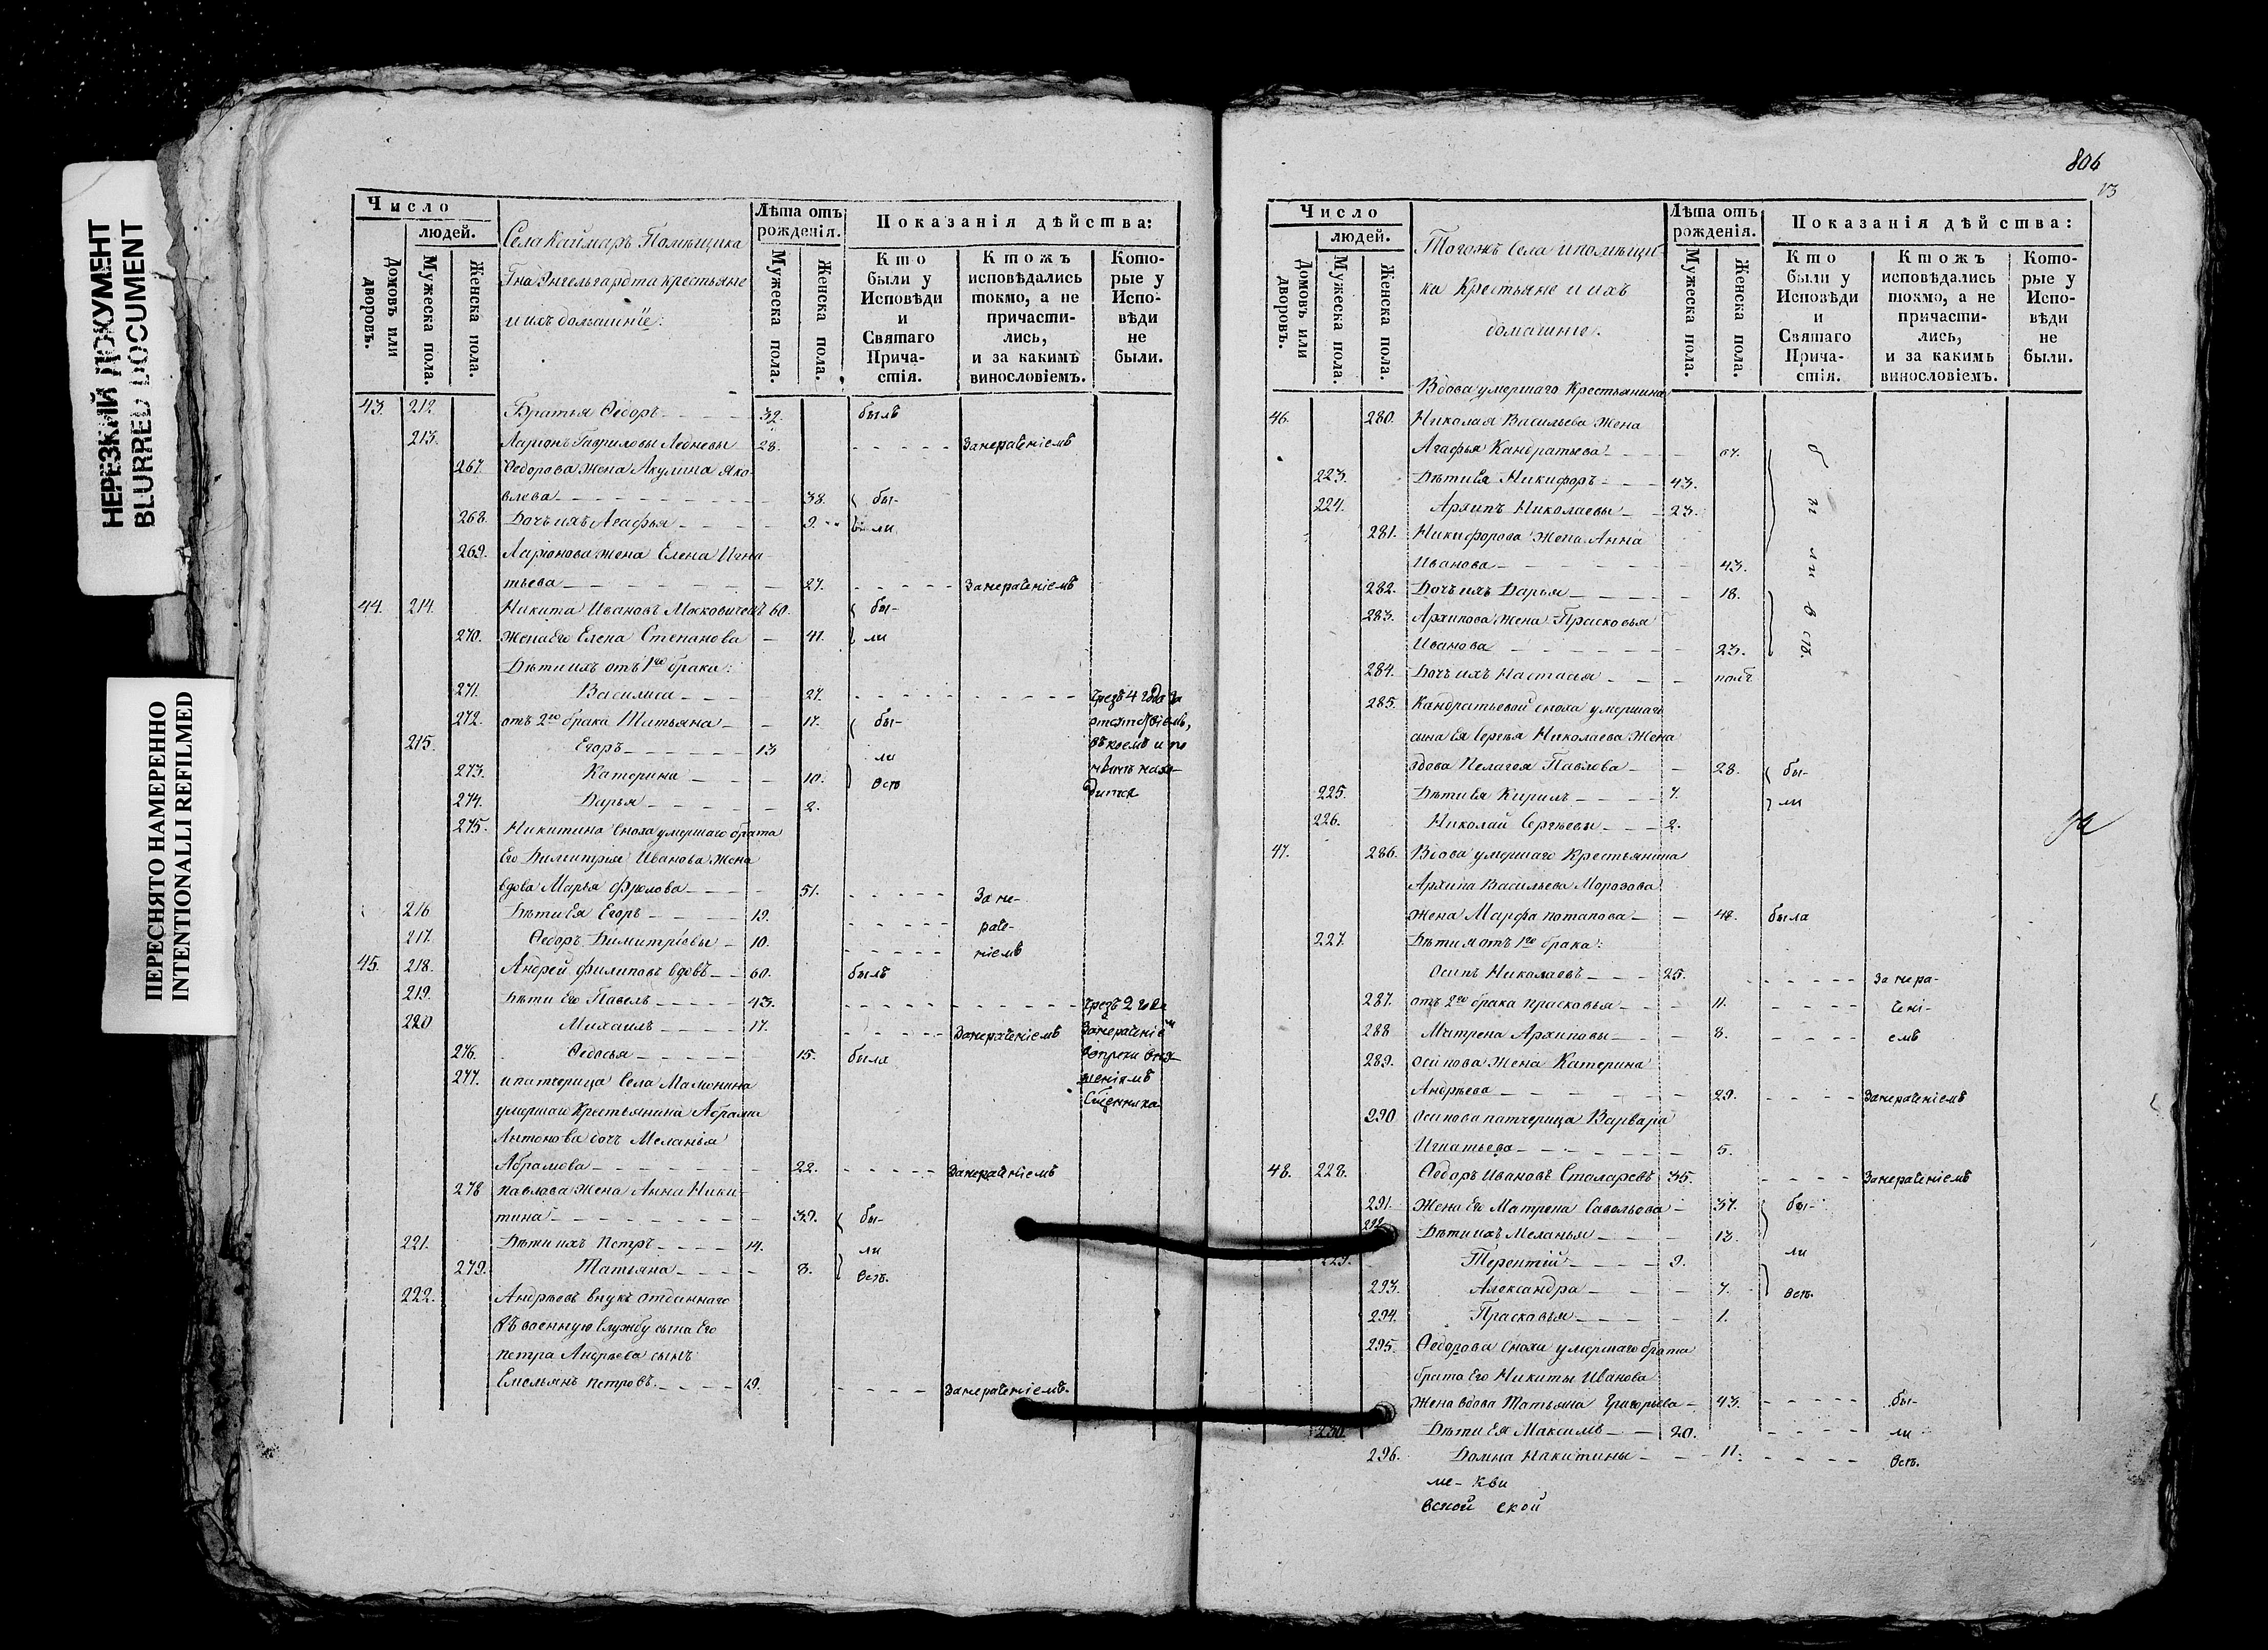 НЕРЕЗКИЙ ДОКУМЕНТ
BLURRED DOCUMENT
ПЕРЕСНЯТО НАМЕРЕННО
INTENTIONALLI REFILMED
Число
людей.
Домовъ или дворовъ.
Мужеска пола.
Женска пола.
Села Каймаръ Помѣщика
Гна Энгельгардта крестьяне
и ихъ домашнiе.
Лѣта отъ рожденія.
Мужеска пола.
Женска пола.
Показанія дѣйства:
Кто были у Исповѣди и Святаго Причастія.
Ктожъ исповѣдались токмо, а не причастились, и за какимъ винословіемъ.
Которые у Исповѣди не были.
43. 212. Братья Ѳедоръ 32. былъ
213. Ларіонъ Гавриловы Ледневы 28. За нераченіемъ
267. Ѳедорова жена Акулина Яко-
влева 38. бы-
268. Дочь ихъ Агафья 9. ли
269. Ларіонова жена Елена Игна-
тьева 27. За нераченіемъ
44. 214. Никита Ивановъ 60. бы-
270. Жена Его Елена Степанова 41. ли
Дѣти ихъ отъ 1го брака:
271. Василиса 27. Чрезъ 4 года за
272. отъ 2го брака Татьяна 17. бы-
215. Егоръ 13 ли въ коемъ и по
273. Катерина 10. всѣ
274. Дарья 2. дится
275. Никитина сноха умершаго брата
Его Димитрія Иванова жена
вдова Марья Фролова 51. За не-
216. Дѣти Ея Егоръ 19. раче-
217. Ѳедоръ Димитріевы 10. ніемъ
45. 218. Андрей Филиповъ вдовъ 60. былъ
219. Дѣти Его Павелъ 43. Чрезъ 2 года
220 Михаилъ 17. За нераченіемъ За нераченіемъ
276. Ѳедосья 15. была вопреки вну-
277. и патчерица села Мамонина шеніямъ
умершаго Крестьянина Абрама
Антонова дочь Меланья
Абрамова 22. За нераченіемъ
278 Павлова жена Анна Ники-
тина 39. бы-
221. Дѣти ихъ Петръ 14. ли
279. Татьяна 8. всѣ.
222. Андреевъ внукъ отданнаго
въ военную службу сына Его
Петра Андреева сынъ
Емельянъ Петровъ. 19. За нераченіемъ.
806
Число
людей.
Домовъ или дворовъ.
Мужеска пола.
Женска пола.
Тогожъ Села и помѣщи-
ка Крестьяне и ихъ
домашніе.
Лѣта отъ рожденія.
Мужеска пола.
Женска пола.
Показанія дѣйства:
Кто были у Исповѣди и Святаго Причастія.
Ктожъ исповѣдались токмо, а не причастились, и за какимъ винословіемъ.
Которые у Исповѣди не были.
Вдова умершаго Крестьянина
46. 280. Николая Васильева жена
Агафья Кандратьева 67.
223. Дѣти Ея Никифоръ 43.
224. Архипъ Николаевы 23.
281. Никифорова жена Анна
Иванова 43.
282. Дочь ихъ Дарья 18.
283. Архипова жена Прасковья
Иванова 23.
были всѣ.
284. Дочь ихъ Настасья
285. Кандратьевой сноха умершаго
сына Ея Сергея Николаева жена
вдова Пелагея Павлова 28. бы-
225. Дѣти Ея Кирилъ 7. ли
226. Николай Сергѣевы 2.
47. 286. Вдова умершаго Крестьянина
Архипа Васильева Морозова
жена Марфа Потапова 48. была
227. Дѣти я отъ 1го брака:
Осипъ Николаевъ 25. За нера-
287. отъ 2го брака Прасковья 11. чені-
288 Матрена Архиповы 8. емъ
289. Осипова жена Катерина
Андреева 29. За нераченіемъ
290 Осипова патчерица Варвара
Игнатьева 5.
48. 228. Ѳедоръ Ивановъ Столаревъ 35. За нераченіемъ
291. Жена Его Матрена Савельева 37. бы-
292. Дѣти ихъ Меланья 13. ли
229. Терентій 9.
293. Александра 7. всѣ.
294. Прасковья 1.
295. Ѳедорова сноха умершаго брата
брата Его Никиты Иванова
жена вдова Татьяна Григорьева 43. бы-
230. Дѣти Ея Максимъ 20. ли
296. Домна Никитины 11. всѣ.